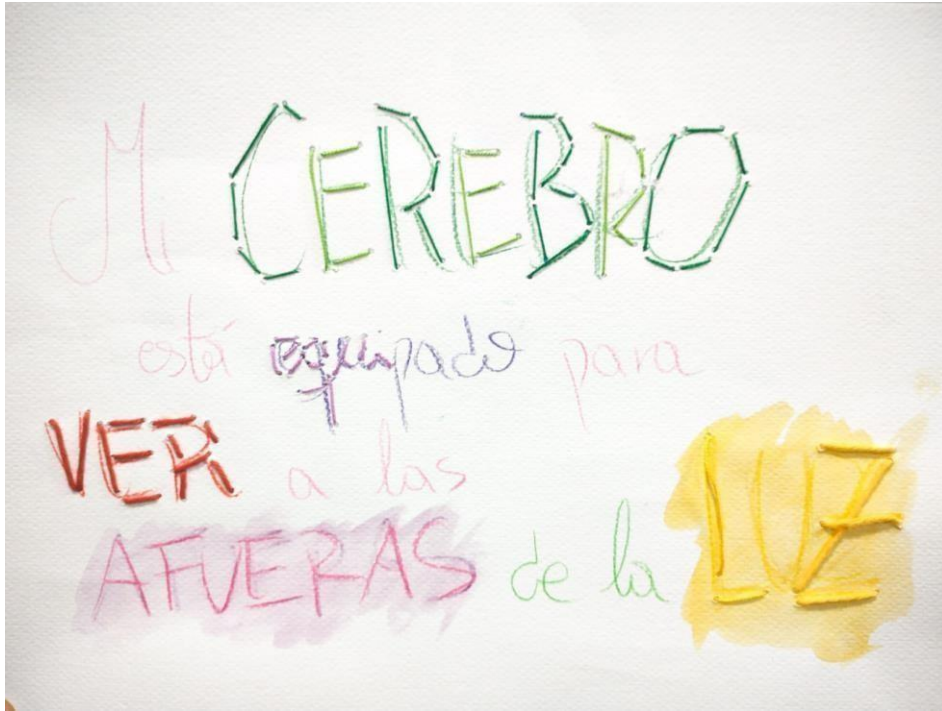 Mi CEREBRO
está equipado para
VER a las
AFUERAS de la LUZ